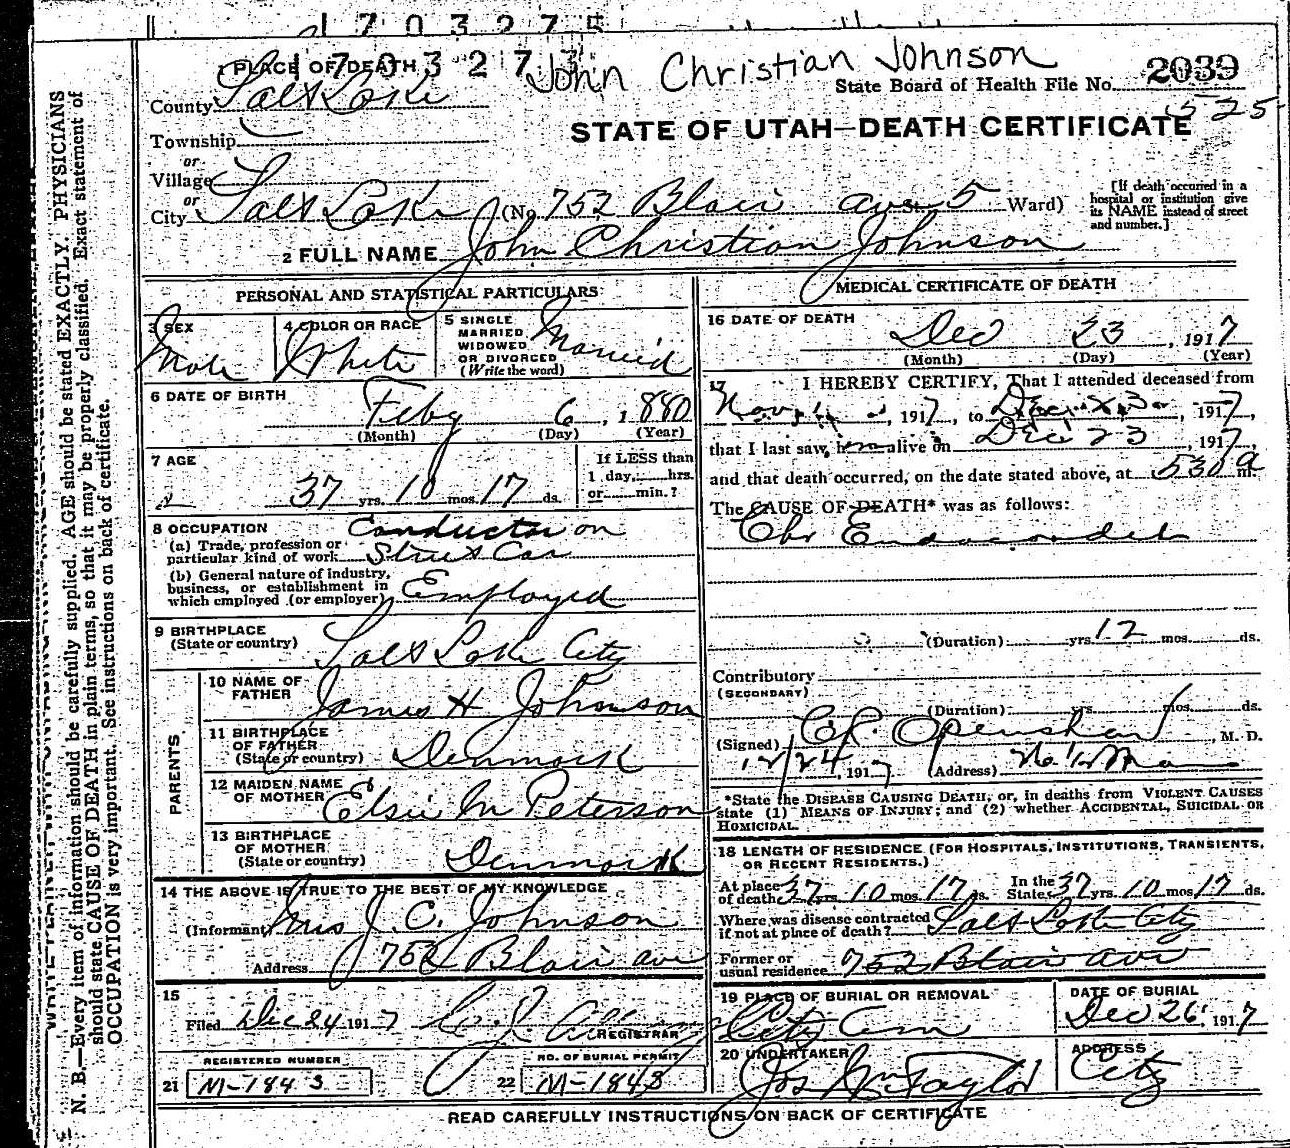 1703275
1703273
John Christian Johnson
1 PLACE OF DEATH
State Board of Health File No. 2039
County Salt Lake
525
STATE OF UTAH—DEATH CERTIFICATE
Township
or
Village
or
City Salt Lake (No. 752 Blair ave 5 Ward)
[If death occurred in a hospital or institution give its NAME instead of street and number.]
2 FULL NAME John Christian Johnson
PERSONAL AND STATISTICAL PARTICULARS
3 SEX Male
4 COLOR OR RACE White
5 SINGLE MARRIED WIDOWED OR DIVORCED (Write the word) Married
6 DATE OF BIRTH Feby 6, 1880
(Month) (Day) (Year)
7 AGE 37 yrs. 10 mos. 17 ds.
If LESS than 1 day, hrs. or min.?
8 OCCUPATION Conductor on
(a) Trade, profession or particular kind of work Street Car
(b) General nature of industry, business, or establishment in which employed (or employer) Employed
9 BIRTHPLACE (State or country) Salt Lake City
PARENTS
10 NAME OF FATHER James H Johnson
11 BIRTHPLACE OF FATHER (State or country) Denmark
12 MAIDEN NAME OF MOTHER Elsie M Peterson
13 BIRTHPLACE OF MOTHER (State or country) Denmark
14 THE ABOVE IS TRUE TO THE BEST OF MY KNOWLEDGE
(Informant) Mrs J. C. Johnson
Address 752 Blair ave
15
Filed Dec 24 1917
REGISTRAR
REGISTERED NUMBER
21 M-1843
NO. OF BURIAL PERMIT
22 M-1843
MEDICAL CERTIFICATE OF DEATH
16 DATE OF DEATH Dec 23, 1917
(Month) (Day) (Year)
17 I HEREBY CERTIFY, That I attended deceased from
Nov. 1917, to Dec. 23 1917,
that I last saw him alive on Dec 23, 1917,
and that death occurred, on the date stated above, at 530 a m.
The CAUSE OF DEATH* was as follows:
Chr Endocarditis
(Duration) yrs. 12 mos. ds.
Contributory
(SECONDARY)
(Duration) yrs. mos. ds.
(Signed) C.R. Openshaw, M. D.
12/24, 1917 (Address)
*State the DISEASE CAUSING DEATH, or, in deaths from VIOLENT CAUSES
state (1) MEANS OF INJURY; and (2) whether ACCIDENTAL, SUICIDAL OR
HOMICIDAL.
18 LENGTH OF RESIDENCE (FOR HOSPITALS, INSTITUTIONS, TRANSIENTS,
OR RECENT RESIDENTS.)
At place of death 37 yrs. 10 mos. 17 ds. In the State 37 yrs. 10 mos. 17 ds.
Where was disease contracted if not at place of death? Salt Lake City
Former or usual residence 752 Blair ave
19 PLACE OF BURIAL OR REMOVAL City Cem
DATE OF BURIAL Dec 26, 1917
20 UNDERTAKER Jos Wm Taylor
ADDRESS City
READ CAREFULLY INSTRUCTIONS ON BACK OF CERTIFICATE
N. B.—Every item of information should be carefully supplied. AGE should be stated EXACTLY. PHYSICIANS
should state CAUSE OF DEATH in plain terms, so that it may be properly classified. Exact statement of
OCCUPATION is very important. See instructions on back of certificate.